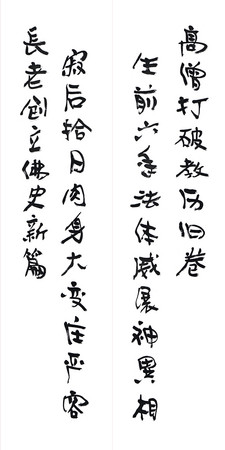 高僧打破教历旧卷
生前六年法体威展神異相
寂后拾日肉身大变庄严容
長老创立佛史新篇